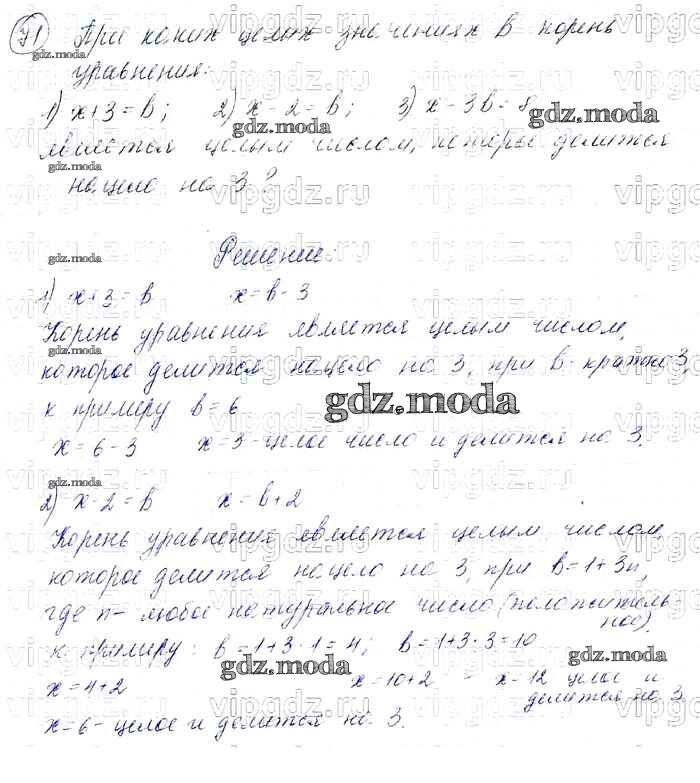 71 При каких целых значениях b корень
уравнения:
1) x+3=b; 2) x-2=b; 3) x-3b=8
является целым числом, которое делится
нацело на 3?
Решение
1) x+3=b x=b-3
Корень уравнения является целым числом,
которое делится нацело на 3, при b-кратно 3,
к примеру b=6
x=6-3 x=3-целое число и делится на 3.
2) x-2=b x=b+2
Корень уравнения является целым числом,
которое делится нацело на 3, при b=1+3n,
где n- любое натуральное число (положитель
ное).
к примеру: b=1+3·1=4; b=1+3·3=10
x=4+2 x=10+2 - x=12 целое и
делится на 3
x=6-целое и делится на 3.
gdz.moda
vipgdz.ru